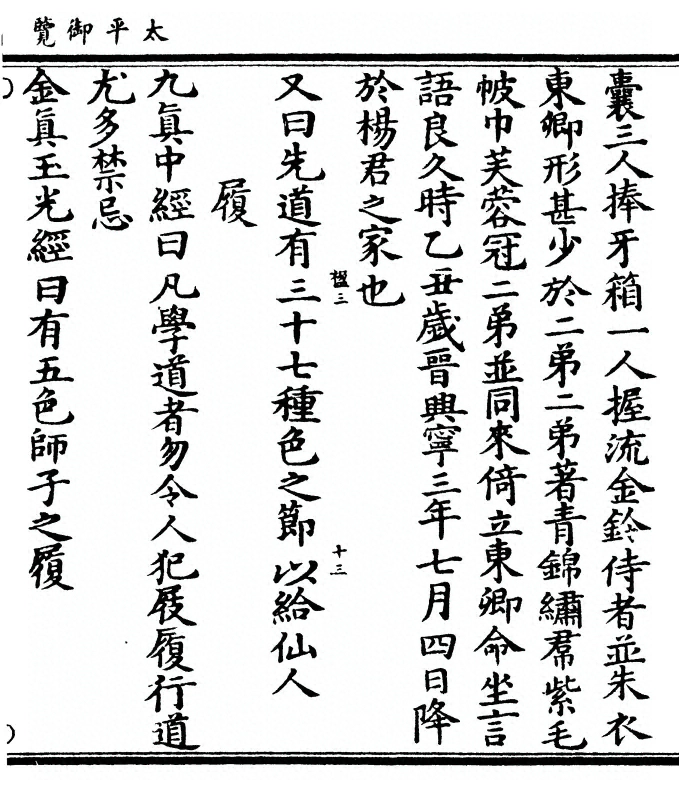 太平御覽
囊三人捧牙箱一人握流金鈴侍者並朱衣
東卿形甚少於二弟二弟著青錦繡帬紫毛
帔巾芙蓉冠二弟並同來倚立東卿命坐言
語良久時乙丑歲晉興寧三年七月四日降
於楊君之家也
又曰先道有三十七種色之節以給仙人
榲三
十三
履
九眞中經曰凡學道者勿令人犯屐履行道
尤多禁忌
金眞玉光經曰有五色師子之履